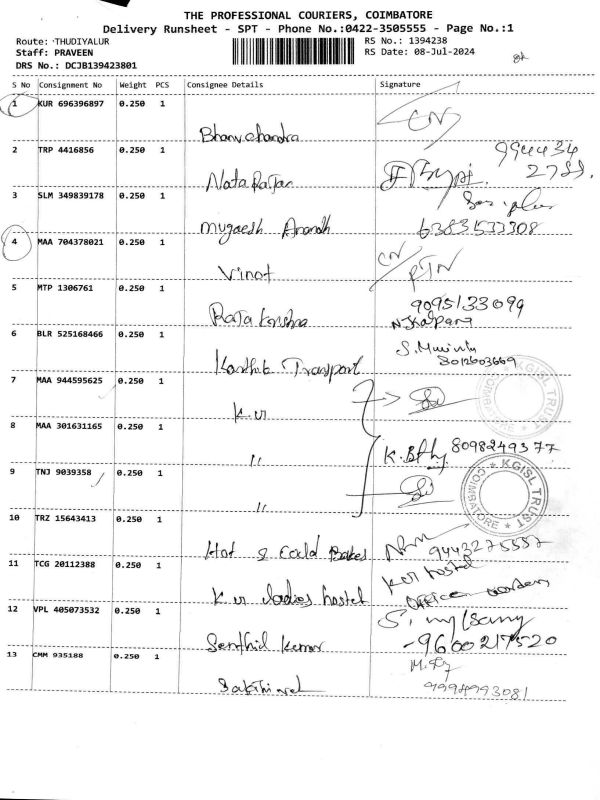 THE PROFESSIONAL COURIERS, COIMBATORE
Delivery Runsheet - SPT - Phone No.:0422-3505555 - Page No.:1
Route: THUDIYALUR
RS No.: 1394238
Staff: PRAVEEN
RS Date: 08-Jul-2024
DRS No.: DCJB139423801
S No Consignment No Weight PCS Consignee Details Signature
1 KUR 696396897 0.250 1
CN
Bhanuchandra
2 TRP 4416856 0.250 1
Nata Rajan
3 SLM 349839178 0.250 1
Mugaesh Anandh 6383533308
4 MAA 704378021 0.250 1
CN
Vinot
5 MTP 1306761 0.250 1
9095133099
Raja Krishna N.Kalpana
6 BLR 525168466 0.250 1
Karthik Transport 8012603669
7 MAA 944595625 0.250 1
K.ur
8 MAA 301631165 0.250 1
8098249377
"
9 TNJ 9039358 0.250 1
"
K.GISL TRUST
COIMBATORE
10 TRZ 15643413 0.250 1
Hot & Could Bakes
11 TCG 20112388 0.250 1
Kur hostel
K.ur ladies hostel office
12 VPL 405073532 0.250 1
Senthil Kumar 9600217520
13 CMM 935188 0.250 1
Sakthivel 9994993081